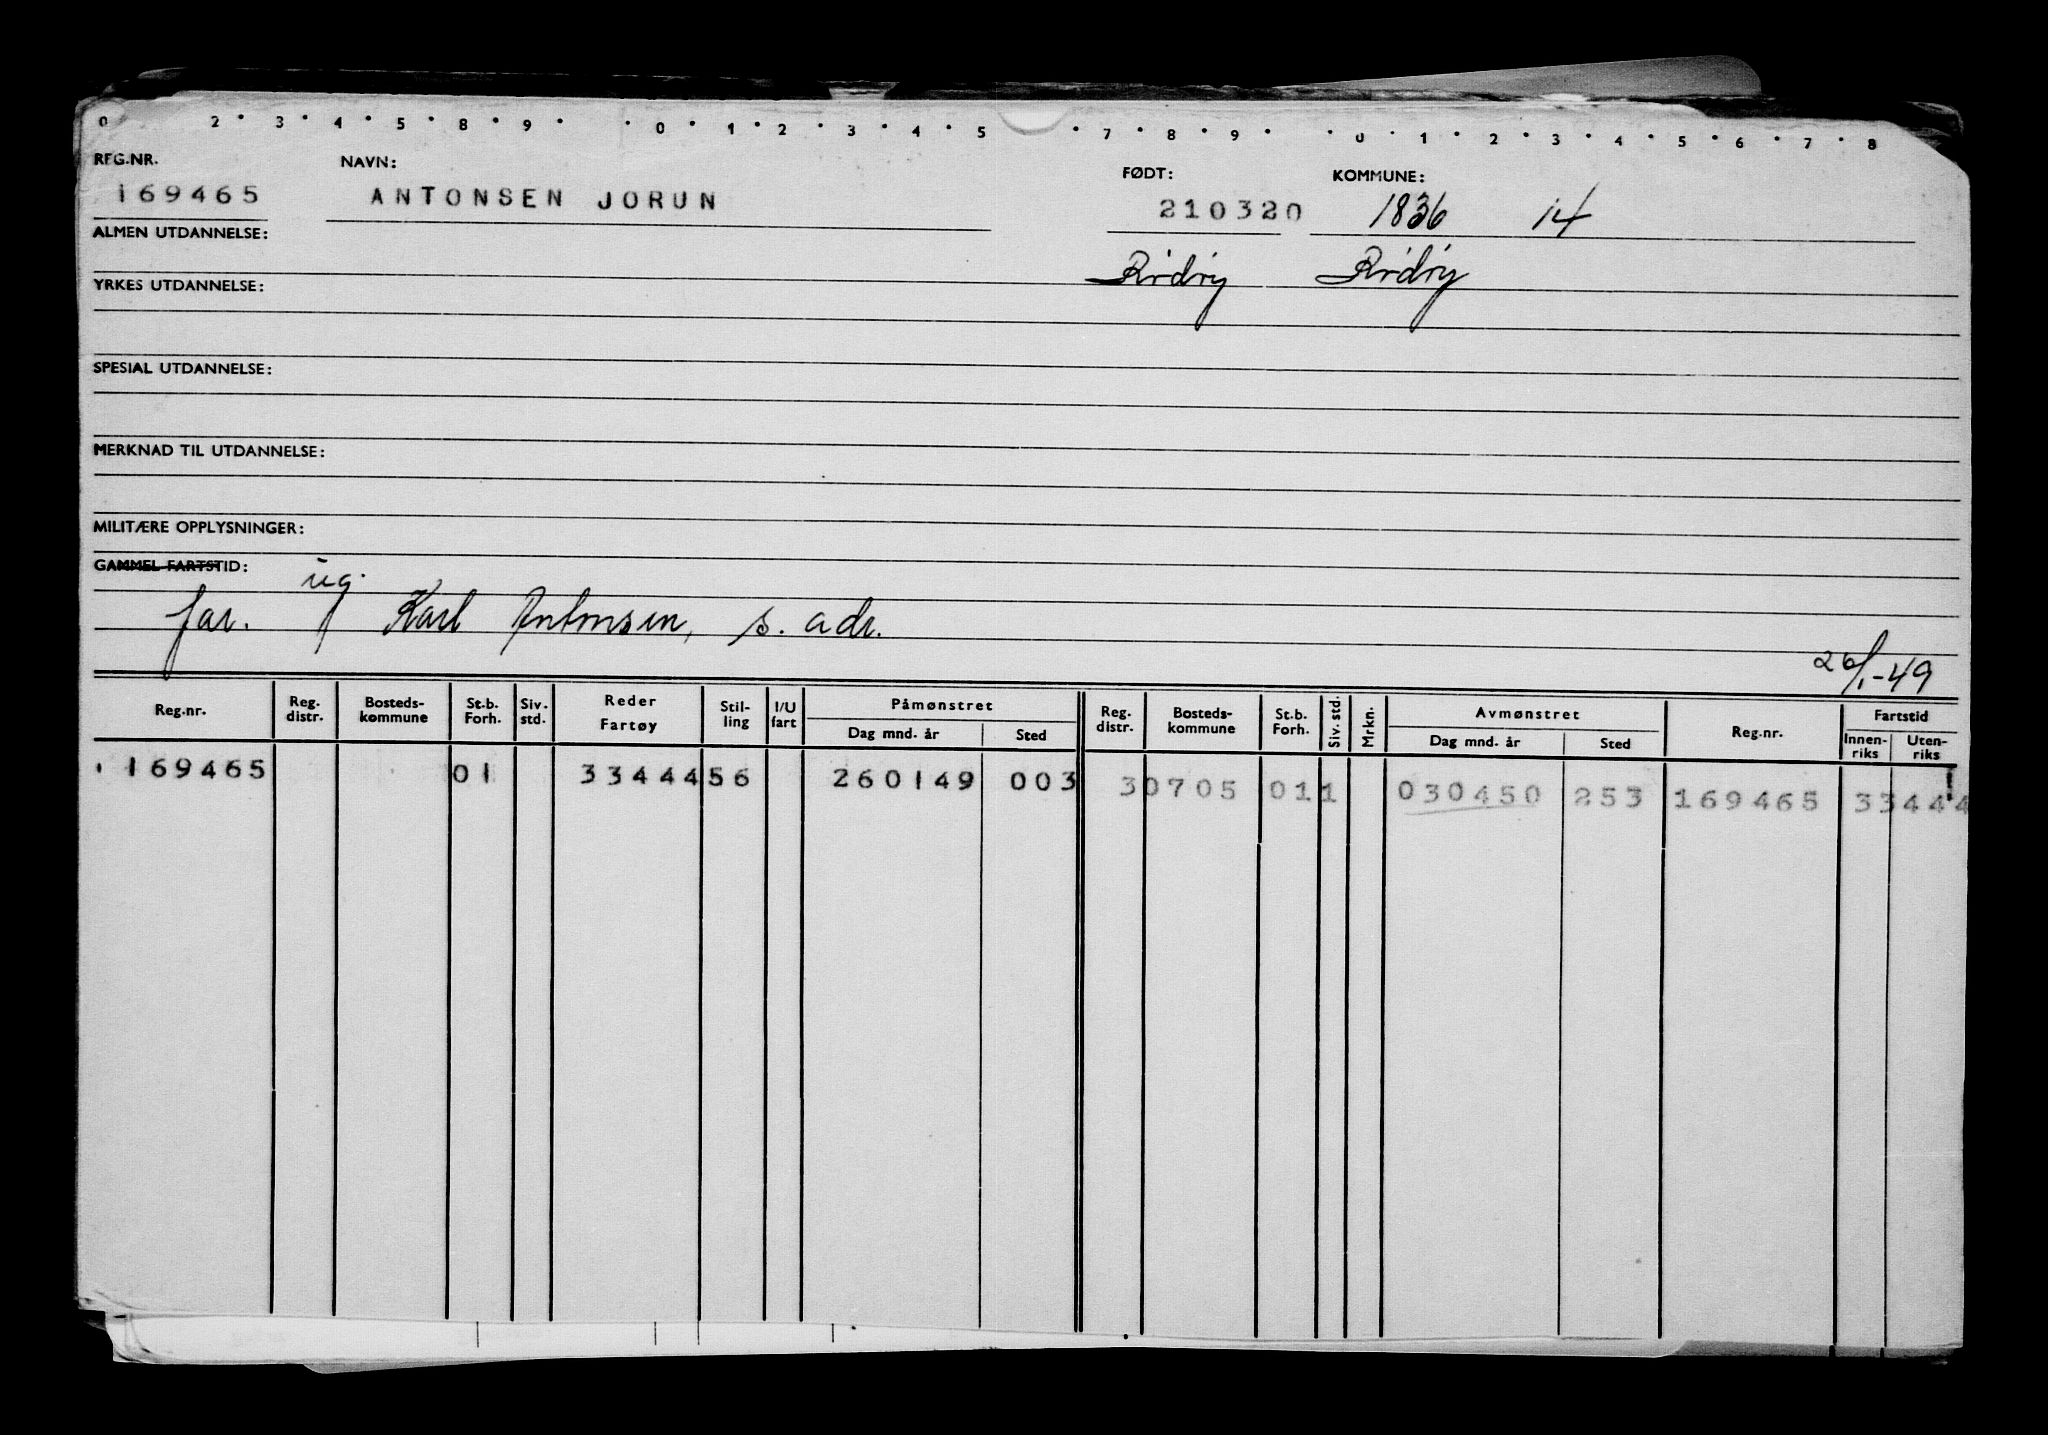 0 2 • 3 • 4 • 5 • 8 • 9 • • 0 • 1 • 2 • 3 • 4 • 5 • 7 • 8 • 9 • • 0 • 1 • 2 • 3 • 4 • 5 • 6 • 7 • 8
REG.NR. NAVN: FØDT: KOMMUNE:
169465 ANTONSEN JORUN 210320 1836 14
ALMEN UTDANNELSE:
Rødøy Rødøy
YRKES UTDANNELSE:
SPESIAL UTDANNELSE:
MERKNAD TIL UTDANNELSE:
MILITÆRE OPPLYSNINGER:
GAMMEL FARTSTID:
ug.
far. Karl Antonsen, s. adr.
26/1-49
Reg.nr. Reg. distr. Bosteds-kommune St.b. Forh. Siv. std. Reder Fartøy Stil-ling I/U fart Påmønstret Dag mnd. år Sted Reg. distr. Bosteds-kommune St.b. Forh. Siv. std. Mrkn. Avmønstret Dag mnd. år Sted Reg.nr. Fartstid Innen-riks Uten-riks
169465 01 3344456 260149 003 30705 011 030450 253 169465 33444